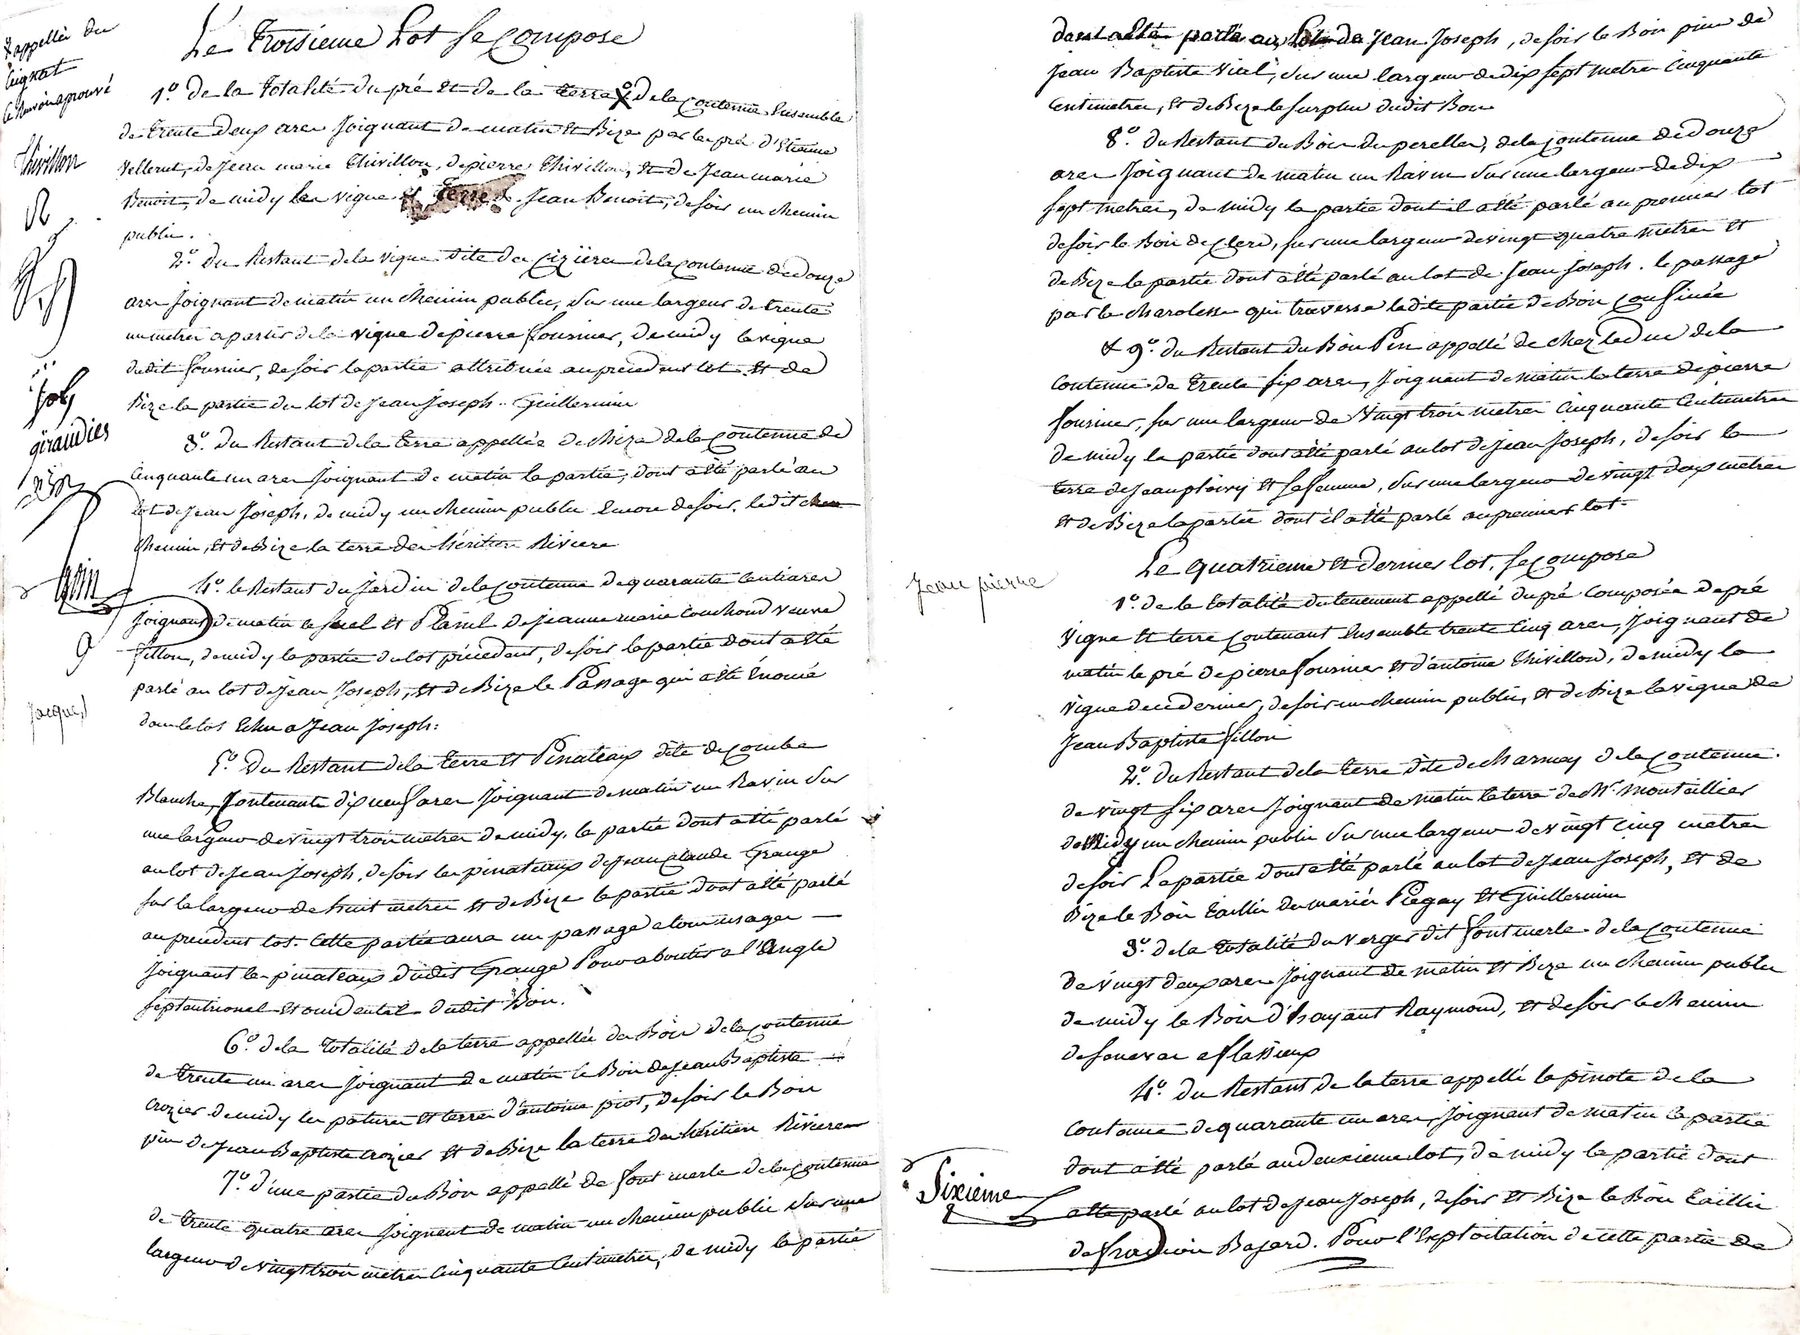 appellée du
Cugnat
le renvoi aprouvé
thivillon
Joly
giraudier
Jacques
Le Troisieme Lot se compose
1.° De la totalité du pré et de la terre de la contenue Ensemble
de trente deux ares Joignant de matin et Bize par les prés d'Etienne
Vellerut, de Jean marie Thivillon, de pierre Thivillon, et de Jean marie
Benoit, de midy les vigne et terre de Jean Benoit, de soir un chemin
public.
2.° Du Restant de la vigne dite des cizieres de la contenue de douze
ares Joignant de matin un chemin public, sur une largeur de trente
un metres a partir de la vigne de pierre fournier, de midy la vigne
dudit fournier, de soir la partie attribuée au précédent lot et de
Bize la partie du lot de Jean Joseph Guillermin
3.° du Restant de la terre appellée de Bize de la contenue de
Cinquante un ares Joignant de matin la partie, dont a été parlé au
lot de Jean Joseph, de midy un chemin public Encore de soir, ledit chem
chemin, et de Bize la terre des héritiers Riviere
4.° le Restant du Jardin de la contenue de quarante centiares
Joignant de matin le suel et Plassil de Jeanne marie Couchoud veuve
fillon, de midy la partie du lot précédent, de soir la partie dont a été
parlé au lot de Jean Joseph, et de Bize le Passage qui a été Enoncé
dans le lot Echu a Jean Joseph:
5.° Du Restant de la Terre et Pinateaux dite de combe
Blanche, Contenante dix neuf ares Joignant de matin un Ravin sur
une largeur de vingt trois metres de midy, la partie dont a été parlé
au lot de Jean Joseph, de soir les pinateaux de Jean Claude Grange
sur la largeur de huit metres et de Bize la partie dont a été parlé
au précédent lot. Cette partie aura un passage a tous usages
Joignant les pinateaux dudit Grange Pour aboutir a l'angle
septentrional et occidental dudit Bois.
6.° de la Totalité de la terre appellée du Bois de la contenue
de trente un ares Joignant de matin le Bois de Jean Baptiste
Crozier de midy les pature et terres d'antoine piot, de soir le Bois
pin de Jean Baptiste crozier et de Bize la terre des héritiers Riviere
7.° d'une partie du Bois appellé de font merle de la contenue
de trente quatre ares Joignant de matin un chemin public sur une
largeur de vingt trois metres cinquante centimetres, de midy la partie
dont a été parlé au Lot de Jean Joseph, de soir le Bois pin de
Jean Baptiste Viel, sur une largeur de dix sept metres cinquante
centimetres, et de Bize le surplus dudit Bois
8.° du Restant du Bois du perellex, de la contenue de douze
ares Joignant de matin un Ravin sur une largeur de dix
sept metres, de midy la partie dont il a été parlé au premier lot
de soir le Bois de Clerd, sur une largeur de vingt quatre metres et
de Bize la partie dont a été parlé au lot de Jean Joseph. le passage
par la charolesse qui traverse ladite partie de Bois Confinée
& 9.° du Restant du Bois Pin appellé de chez leduc de la
Contenue de Trente six ares, Joignant de matin la terre de pierre
fournier, sur une largeur de Vingt trois metres Cinquante Centimetres
de midy la partie dont a été parlé au lot de Jean Joseph, de soir la
terre de Jean ploivy et sa femme, sur une largeur de vingt deux metres
et de Bize la partie dont il a été parlé au premier lot.
Jean pierre
Le quatrieme et dernier lot, se compose
1.° de la totalité du tenement appellé du pré composée de pré
vigne et terre contenant Ensemble trente cinq ares, Joignant de
matin le pré de pierre fournier et d'antoine Thivillon, de midy la
vigne de ce dernier, de soir un chemin public, et de Bize la vigne de
Jean Baptiste fillon
2.° du Restant de la Terre dite de charnay de la contenue
de vingt six ares Joignant de matin la terre de Mr montaillier
de midy un chemin public sur une largeur de vingt cinq metres
de soir La partie dont a été parlé au lot de Jean Joseph, et de
Bize le Bois Taillis des mariés Piegay et Guillermin
3.° de la Totalité du verger dit font merle de la contenue
de vingt deux ares Joignant de matin et Bize un chemin public
de midy le Bois d'hayant Raymond, et de soir le chemin
de senevas a flassieux
4.° du Restant de la terre appellé la pinote de la
contenue de quarante un ares Joignant de matin la partie
dont a été parlé au deuxieme lot, de midy la partie dont
a été parlé au lot de Jean Joseph, de soir et Bize le Bois Taillis
de francois Bajard. Pour l'Exploitation de cette partie de
Sixieme